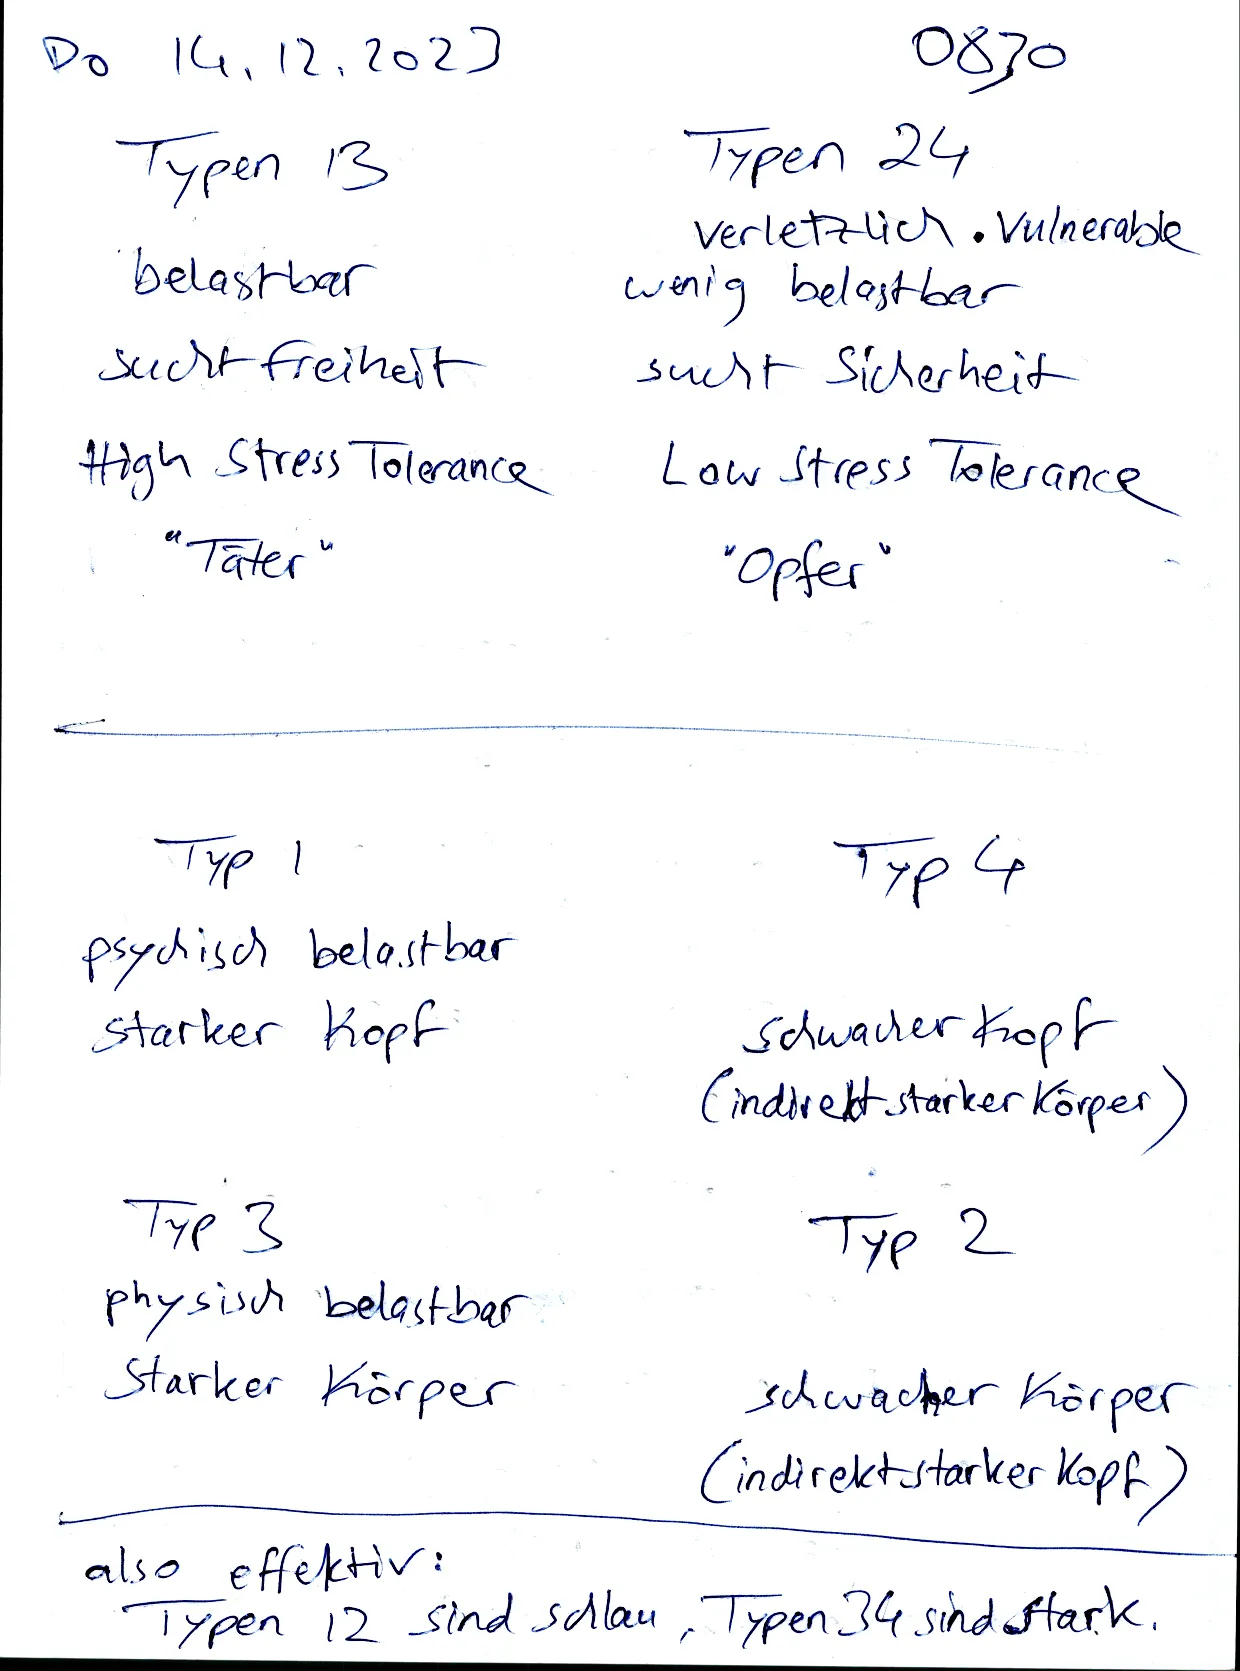 Do 14.12.2023 0830
Typen 13 Typen 24
verletzlich • Vulnerable
belastbar wenig belastbar
sucht Freiheit sucht Sicherheit
High Stress Tolerance Low Stress Tolerance
"Täter" "Opfer"
Typ 1 Typ 4
psychisch belastbar
starker Kopf schwacher Kopf
(indirekt starker Körper)
Typ 3 Typ 2
physisch belastbar
Starker Körper schwacher Körper
(indirekt starker Kopf)
also effektiv:
Typen 12 sind schlau, Typen 34 sind stark.